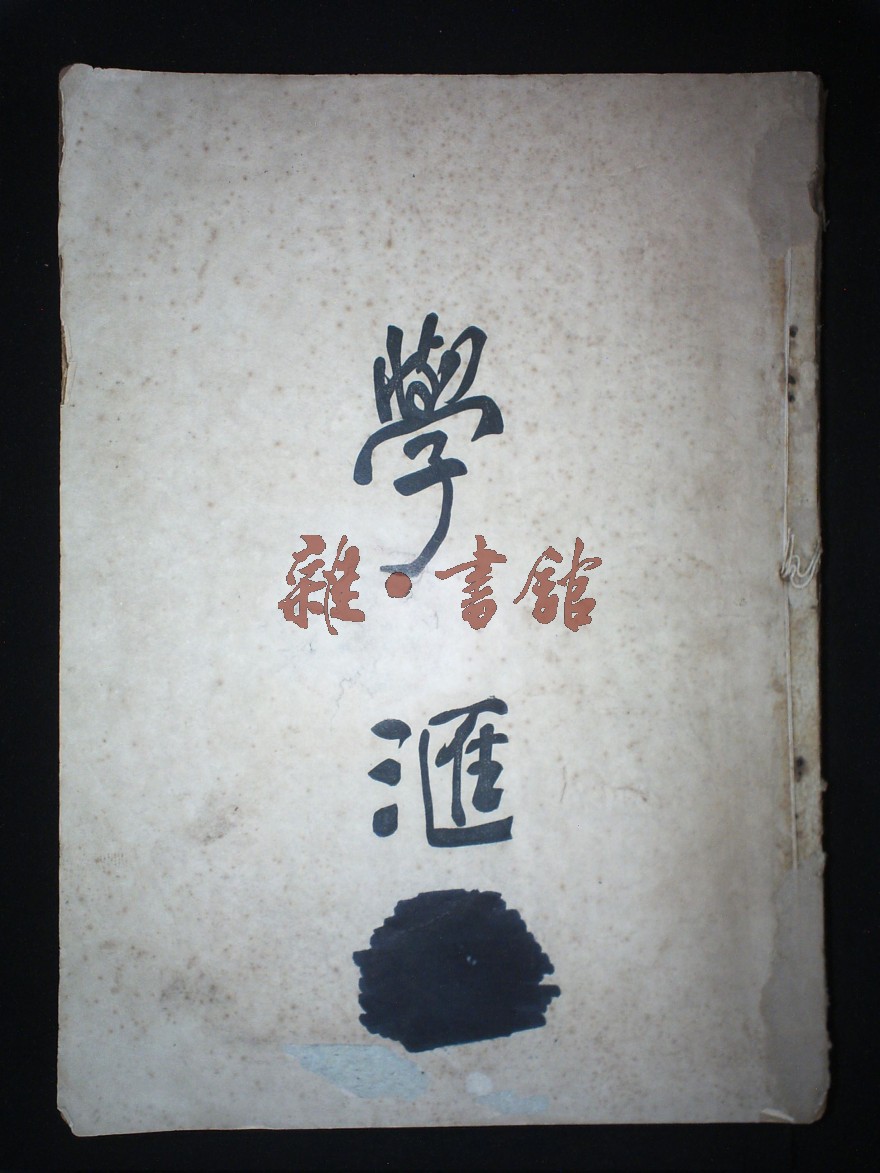 學
雜·書館
滙